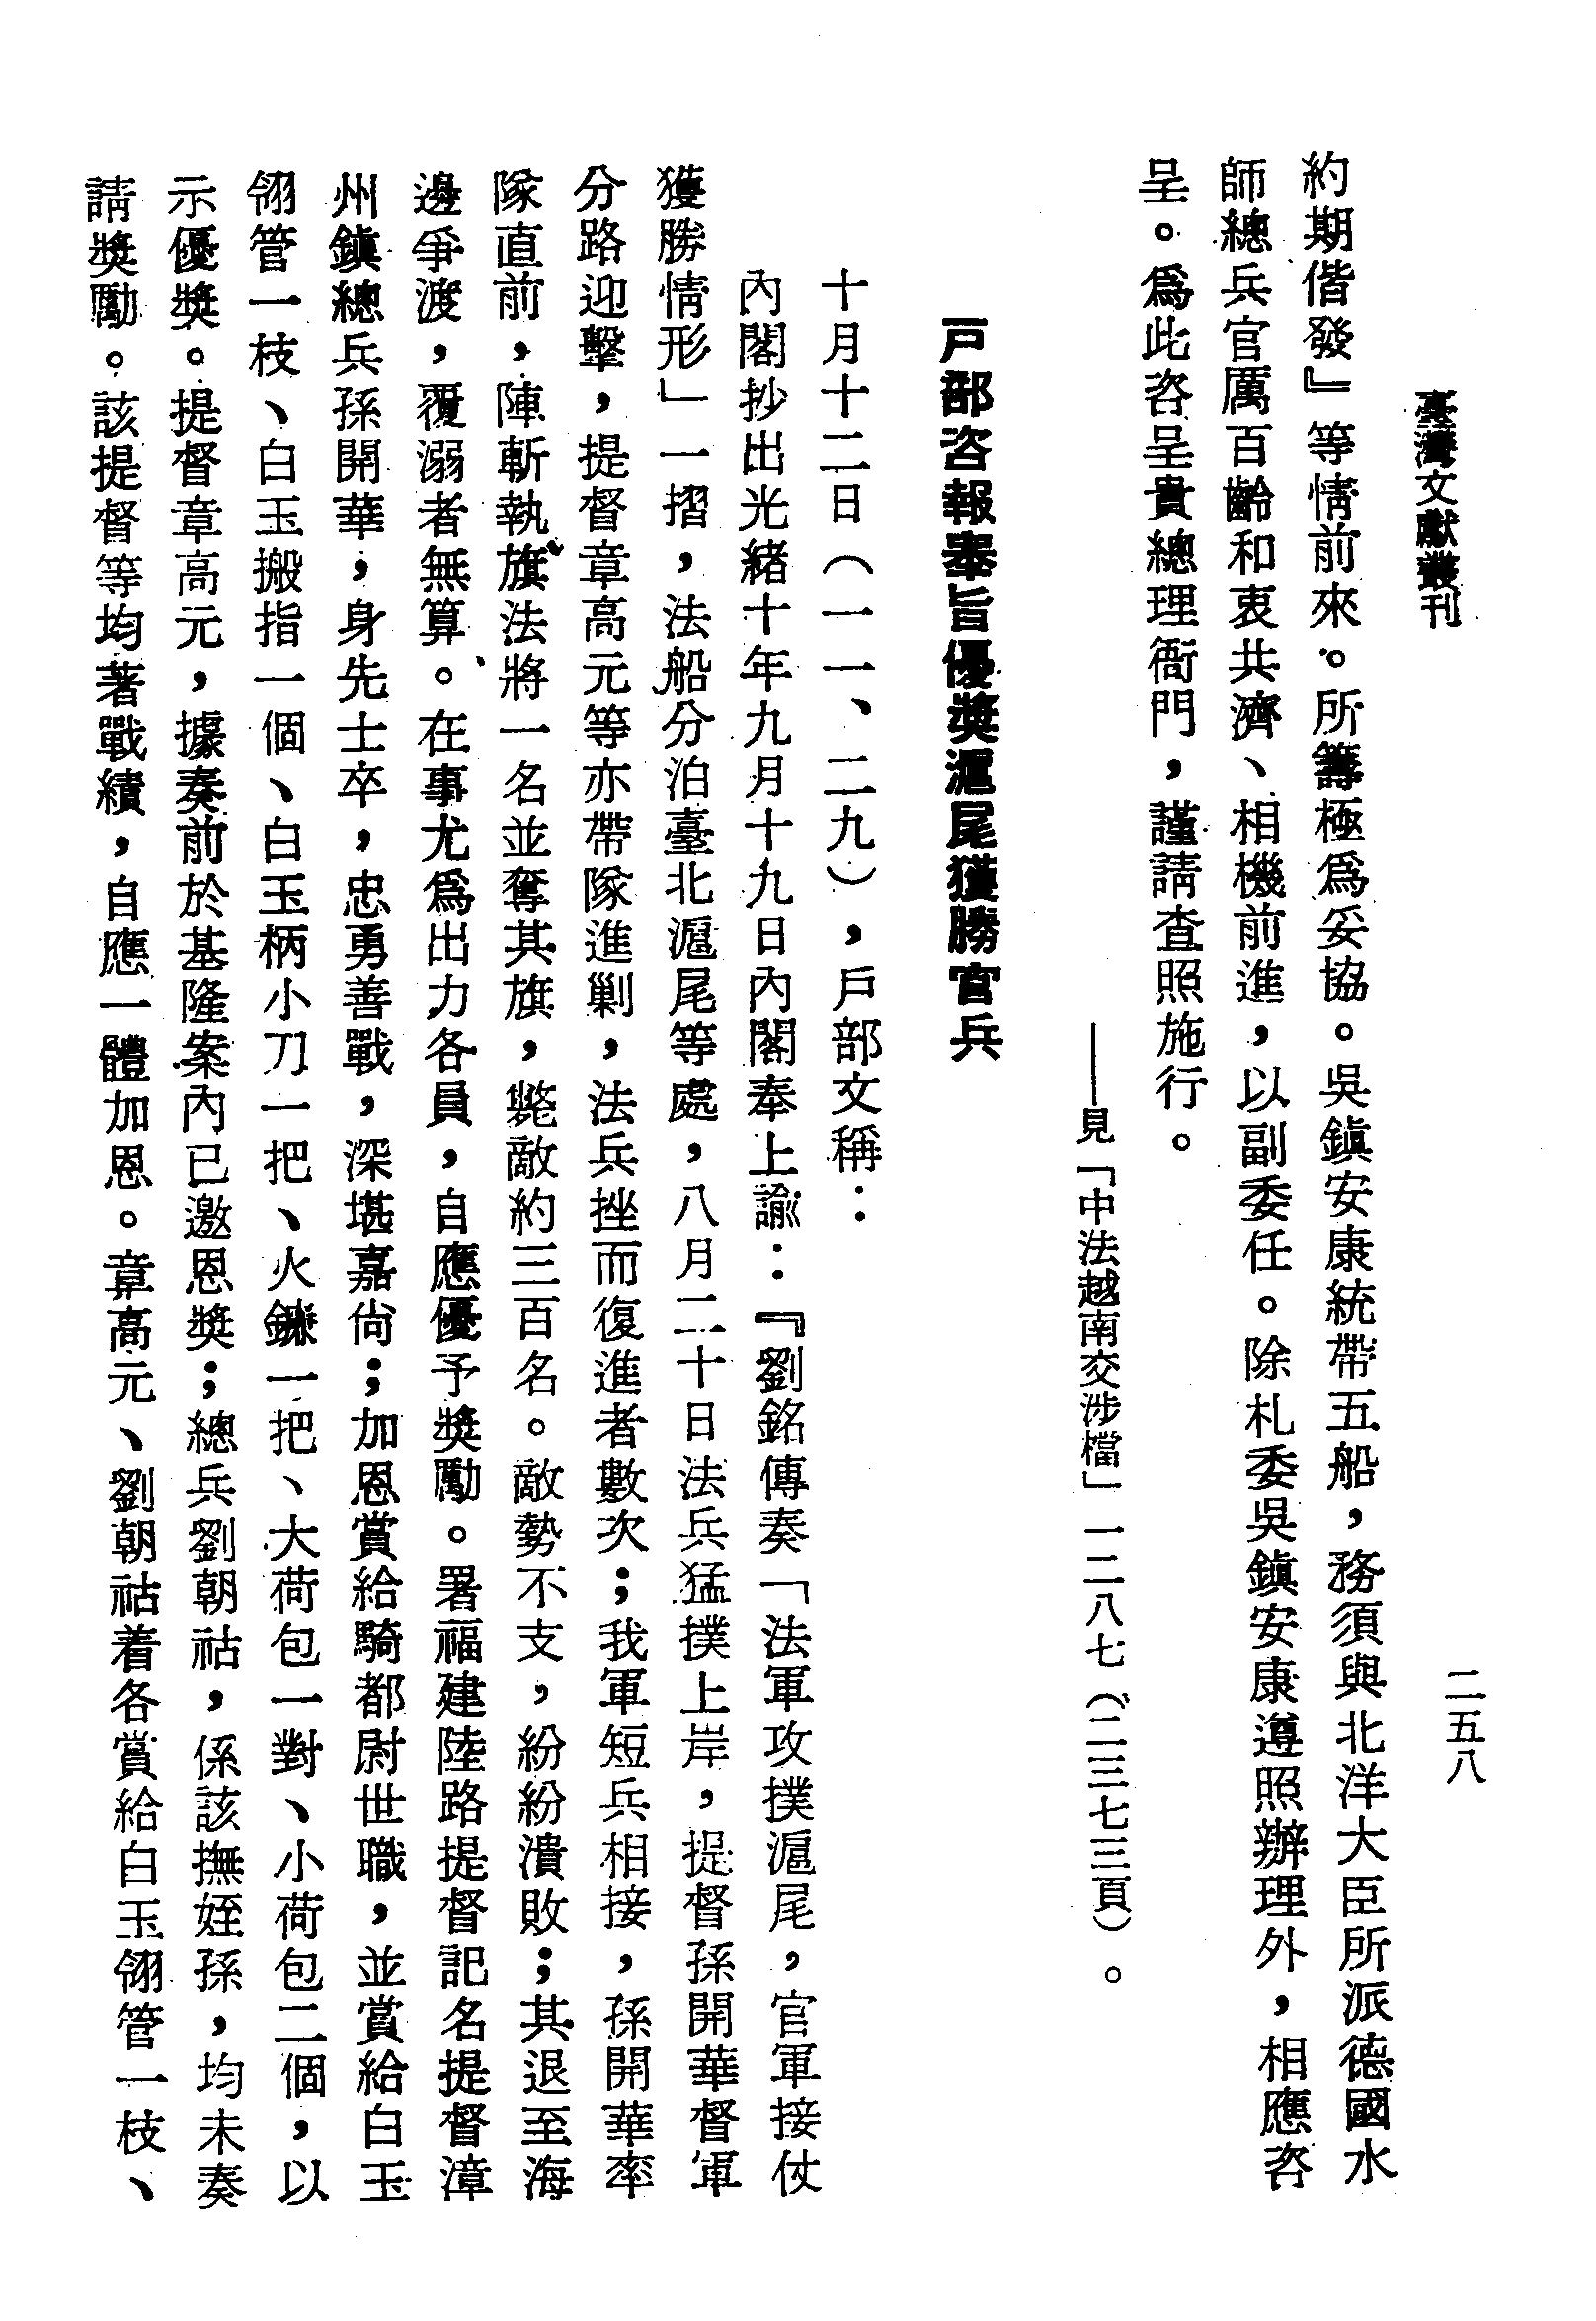 臺灣文獻叢刊
二五八
約期偕發』等情前來。所籌極爲妥協。吳鎭安康統帶五船，務須與北洋大臣所派德國水
師總兵官厲百齡和衷共濟、相機前進，以副委任。除札委吳鎭安康遵照辦理外，相應咨
呈。爲此咨呈貴總理衙門，謹請查照施行。
——見「中法越南交涉檔」一二八七（二三七三頁）。
戶部咨報奉旨優獎滬尾獲勝官兵
十月十二日（一一、二九），戶部文稱：
內閣抄出光緒十年九月十九日內閣奉上諭：『劉銘傳奏「法軍攻撲滬尾，官軍接仗
獲勝情形」一摺，法船分泊臺北滬尾等處，八月二十日法兵猛撲上岸，提督孫開華督軍
分路迎擊，提督章高元等亦帶隊進剿，法兵挫而復進者數次；我軍短兵相接，孫開華率
隊直前，陣斬執旗法將一名並奪其旗，斃敵約三百名。敵勢不支，紛紛潰敗；其退至海
邊爭渡，覆溺者無算。在事尤爲出力各員，自應優予獎勵。署福建陸路提督記名提督漳
州鎭總兵孫開華，身先士卒，忠勇善戰，深堪嘉尙；加恩賞給騎都尉世職，並賞給白玉
翎管一枝、白玉搬指一個、白玉柄小刀一把、火鐮一把、大荷包一對、小荷包二個，以
示優獎。提督章高元，據奏前於基隆案內已邀恩獎；總兵劉朝祜，係該撫姪孫，均未奏
請獎勵。該提督等均著戰績，自應一體加恩。章高元、劉朝祜着各賞給白玉翎管一枝、